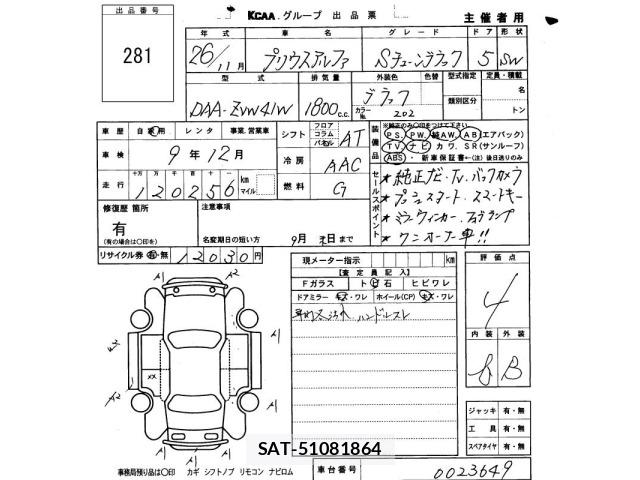 出品番号
281
KCAA.グループ 出品票
主催者用
年式 車名 グレード ドア 形状
26/11月 プリウスアルファ Sチューンブラック 5 SW
型式 排気量 外装色 色替 型式指定 定員・積載
DAA-ZVW41W 1800c.c. ブラック カラーNo. 202 類別区分 名 トン
車歴 自家用 レンタ 事業.営業車
シフト フロア コラム パネル AT
装備品 ※純正のみ〇印をつけて下さい
PS. PW. 純AW. AB(エアバック)
TV ナビ カワ. SR(サンルーフ)
ABS. 新車保証書←(注)後日送りのみ
車検 9年12月
冷房 AAC
走行 十万 万 千 百 十 一
120256 km マイル
燃料 G
セールスポイント
★純正ナビ・TV・バックカメラ
★プッシュスタート スマートキー
★ワンオーナー車!!
修復歴 箇所
有
(有の場合は〇印を)
注意事項
名変期日の短い方 9月末日まで
リサイクル券 有・無 12030円
現メーター指示 km
【査定員記入】
Fガラス トビ石 ヒビワレ
ドアミラー キズ・ワレ ホイール(CP) キズ・ワレ
ハンドルスレ
評価点
4
内装 外装
B B
A1 A2
A1
A1
A1
XX
A1
A1
A2
ジャッキ 有・無
工具 有・無
スペアタイヤ 有・無
SAT-51081864
事務局預り品は〇印 カギ シフトノブ リモコン ナビロム
車台番号 0023649